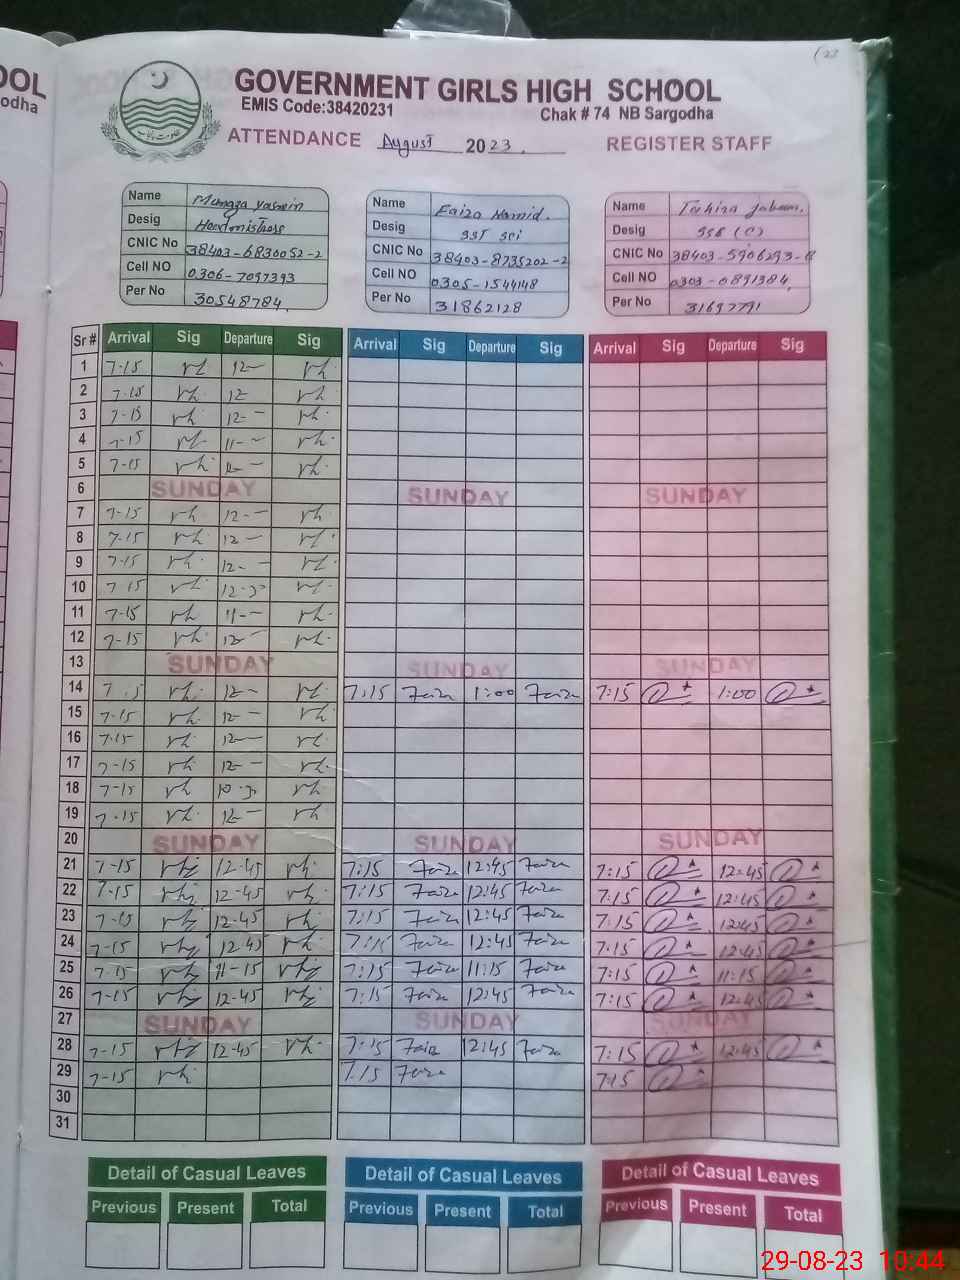 OOL
odha
(23
GOVERNMENT GIRLS HIGH SCHOOL
EMIS Code:38420231 Chak # 74 NB Sargodha
ATTENDANCE August 2023. REGISTER STAFF
Name Mumaza Yasmin
Desig Headmistress
CNIC No 38403-6830052-2
Cell NO 0306-7097393
Per No 30548784
Name Faiza Hamid.
Desig SST Sci
CNIC No 38403-8735202-2
Cell NO 0305-1544148
Per No 31862128
Name Tahira Jabeen.
Desig SSE (C)
CNIC No 38403-5906293-8
Cell NO 0303-0891384
Per No 31697791
Sr # Arrival Sig Departure Sig Arrival Sig Departure Sig Arrival Sig Departure Sig
1 7-15 12-
2 7-15 12
3 7-15 12-
4 7-15 11-
5 7-15
6 SUNDAY SUNDAY SUNDAY
7 7-15 12-
8 7.15 12-
9 7-15 12-
10 7-15 12-30
11 7-15 11-
12 7-15 12-
13 SUNDAY SUNDAY SUNDAY
14 12- 7:15 Faiza 1:00 Faiza 7:15 1:00
15 7-15 12-
16 7.15 12-
17 7-15 12-
18 7-15 10-30
19 7-15 12-
20 SUNDAY SUNDAY SUNDAY
21 7-15 12-45 7:15 Faiza 12:45 Faiza 7:15 12:45
22 7-15 12-45 7:15 Faiza 12:45 Faiza 7:15 12:45
23 7-15 12-45 7:15 Faiza 12:45 Faiza 7:15 12:45
24 7-15 12-45 7:15 Faiza 12:45 Faiza 7:15 12:45
25 7-15 11-15 7:15 Faiza 11:15 Faiza 7:15 11:15
26 7-15 12-45 7:15 Faiza 12:45 Faiza 7:15 12:45
27 SUNDAY SUNDAY SUNDAY
28 7-15 12-45 7:15 Faiza 12:45 Faiza 7:15 12:45
29 7-15 7.15 Faiza 7:15
30
31
Detail of Casual Leaves Detail of Casual Leaves Detail of Casual Leaves
Previous Present Total Previous Present Total Previous Present Total
29-08-23 10:44